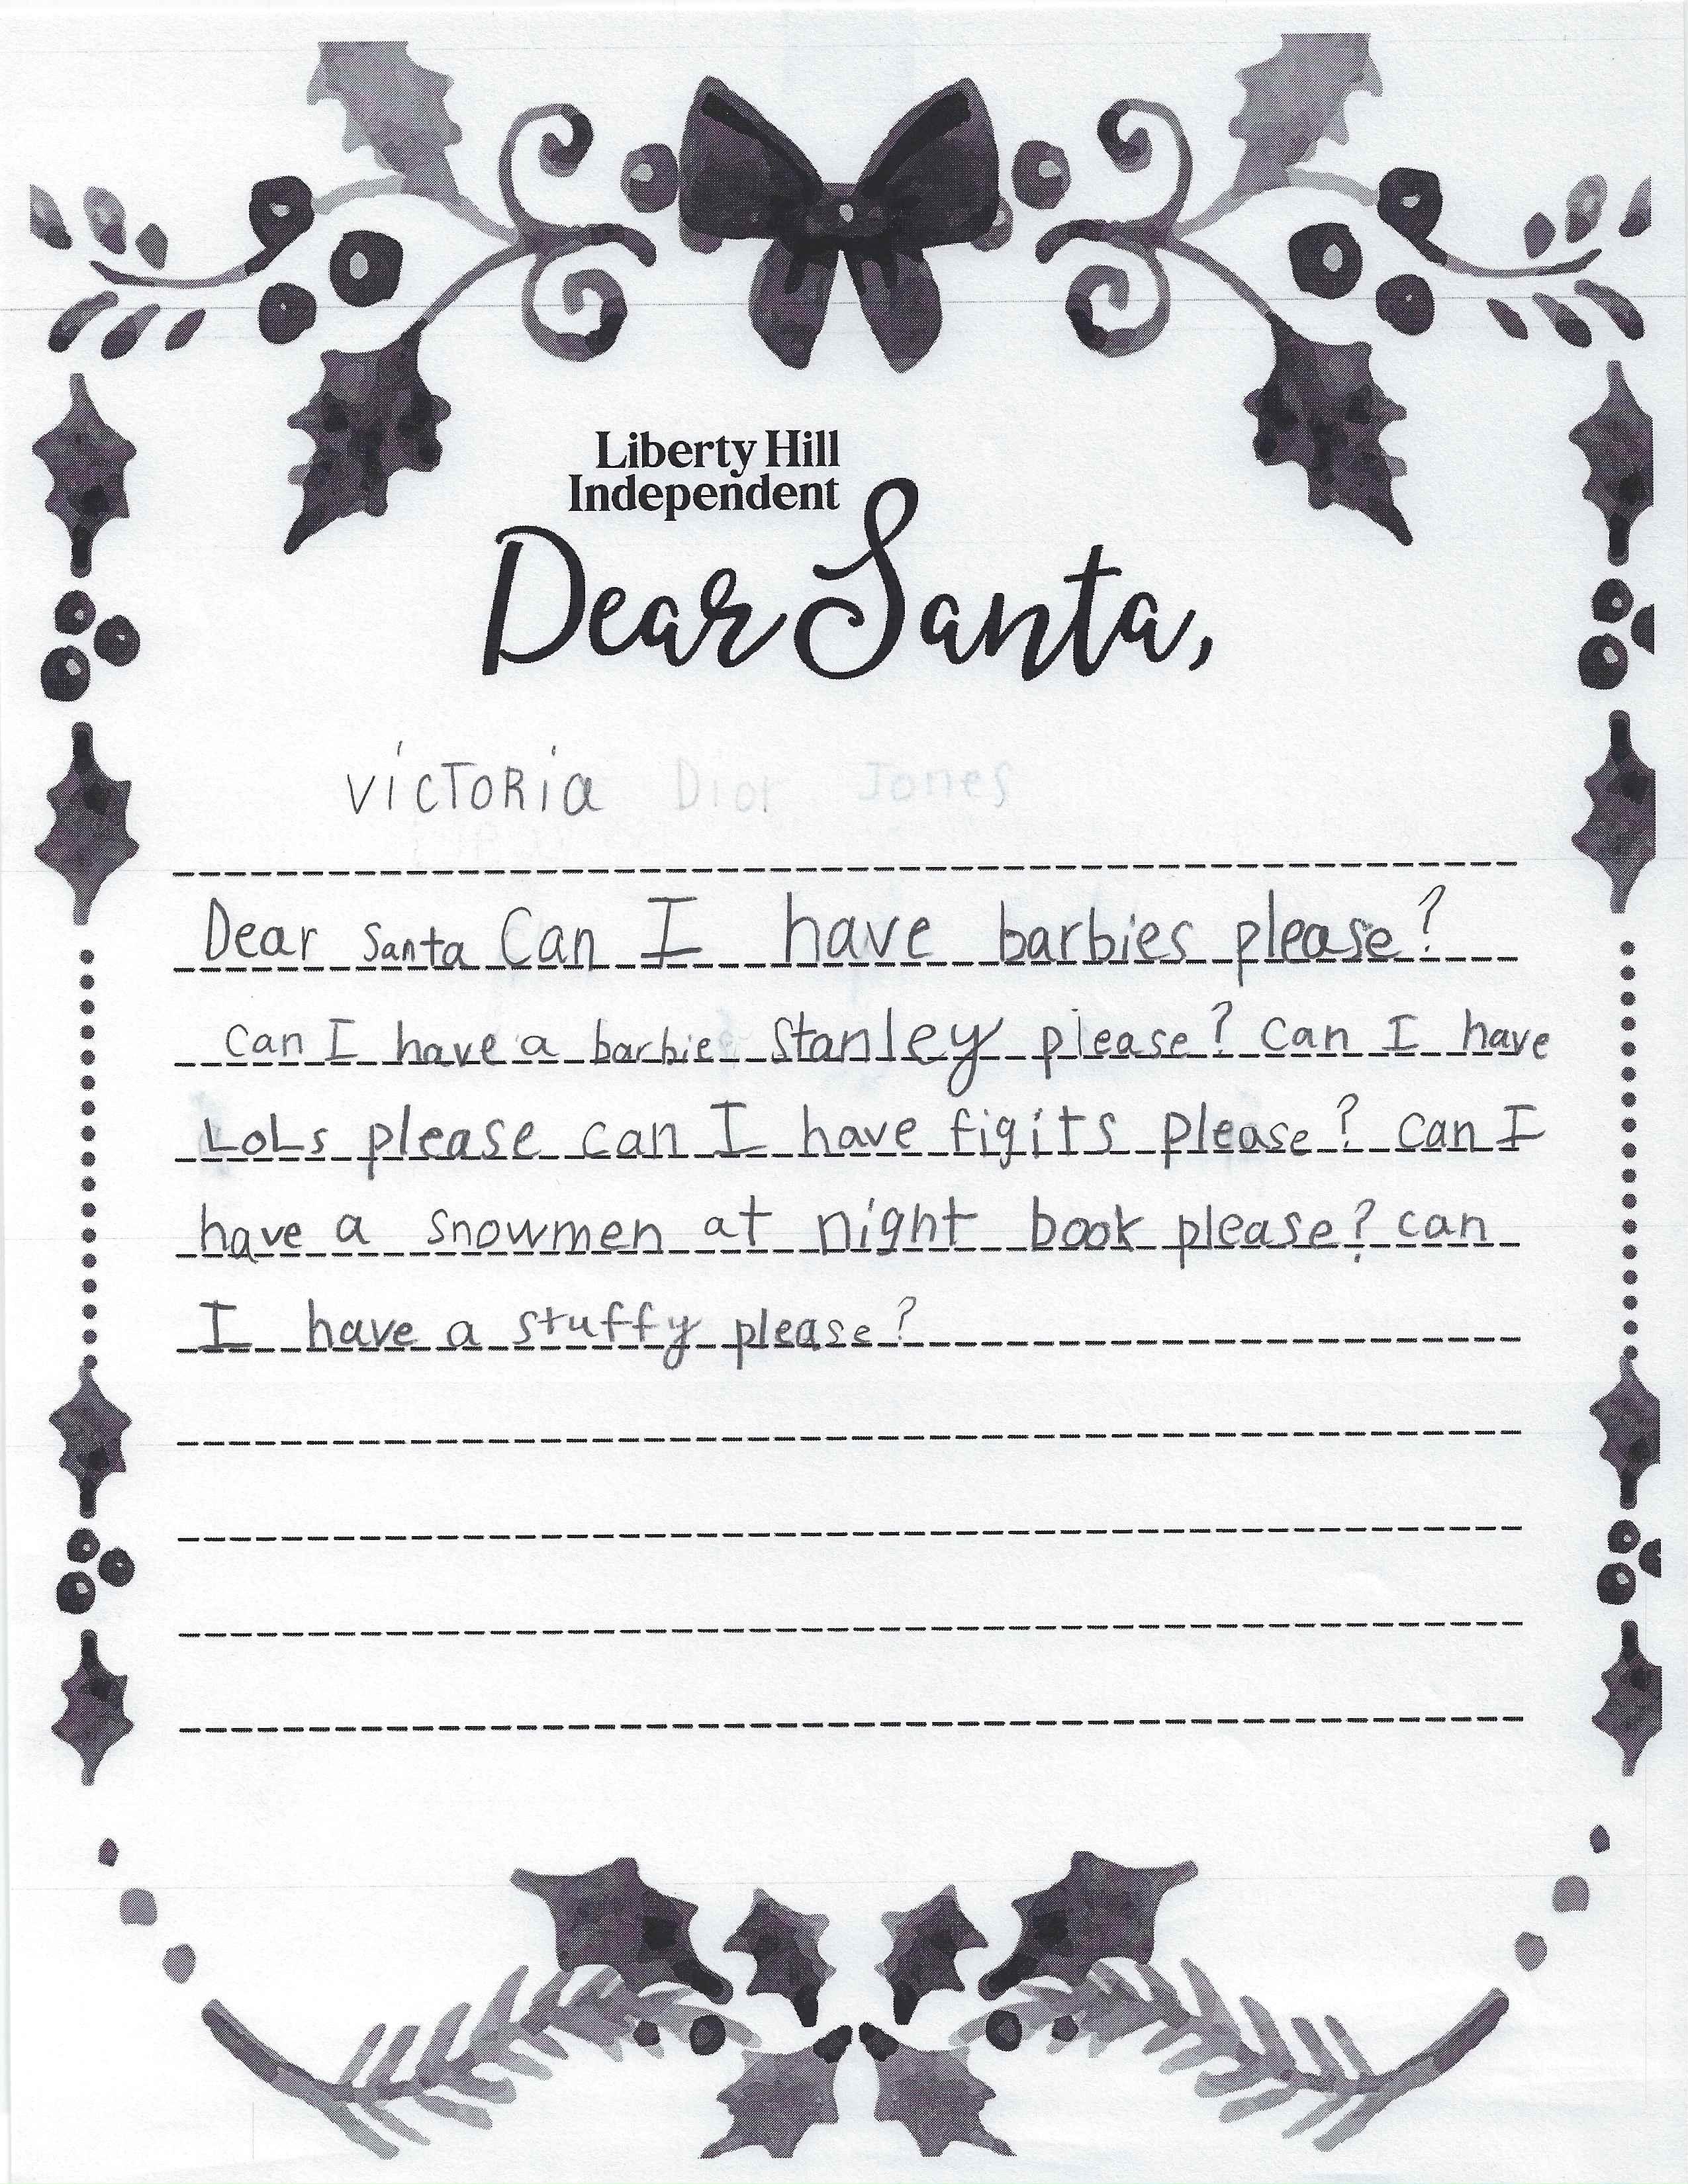 Liberty Hill
Independent
Dear Santa,
VicToRia Dior Jones
Dear Santa Can I have barbies please?
can I have a barbie Stanley please? Can I have
LoLs please can I have figits please? can I
have a snowmen at night book please? can
I have a stuffy please?